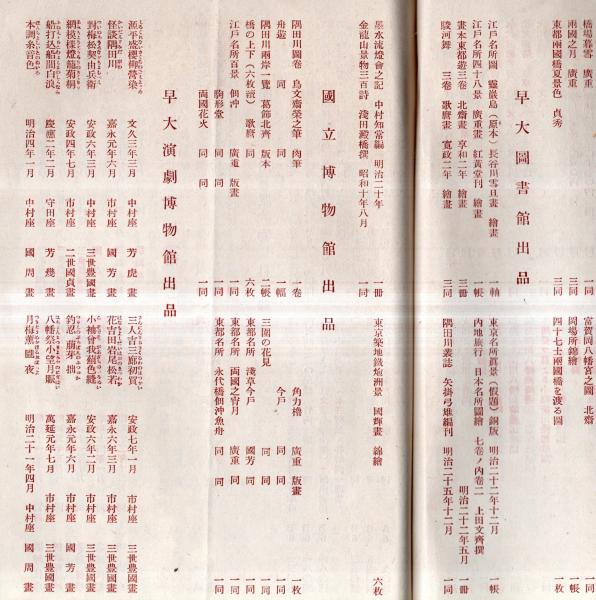 橋場暮雪　廣重　一同
兩國之月　廣重　三同
東都兩國橋夏景色　貞秀　三同
富賀岡八幡宮之圖　北齋　一枚
岡場所錦繪　一同
四十七士兩國橋を渡る圖　一同
早大圖書館出品
江戸名所圖　靈嚴島（原本）長谷川雪旦畫　繪畫　一軸
江戸名所四十八景　廣重畫　紅黃堂刊　繪畫　一帳
畫本東都遊　三卷　北齋畫　享和二年　繪畫　三冊
駿河舞　三卷　歌麿畫　寛政二年　繪畫　三同
東京名所眞景（假題）銅版　明治二十二年十二月　一帳
內地旅行　日本名所圖繪　七卷ノ內卷二　上田文齊撰
明治二十二年五月　一冊
隅田川叢誌　矢掛弓雄編刊　明治二十五年十二月　一同
墨水流燈會之記　中村知常編　明治二十年　一冊
金龍山景物三百詩　淺田澱橋撰　昭和十年八月　一同
東京築地鐵炮洲景　國輝畫　錦繪　六枚
國立博物館出品
隅田川圖卷　鳥文齋榮之筆　肉筆　一卷
舟遊　同　同　一幅
隅田川兩岸一覽　葛飾北齊　版本　二帳
橋の上下（六枚續）　歌麿　同　六枚
江戸名所百景　佃沖　廣重　版畫　一同
駒形堂　同　同　一同
兩國花火　同　同　一同
角力櫓　廣重　版畫　一枚
今戸　同　同　一同
三圍の花見　同　同　一同
東都名所　淺草今戸　國芳　同　一同
東都名所　兩國之宵月　廣重　同　一同
東都名所　永代橋佃沖魚舟　同　同　一同
早大演劇博物館出品
源平盛櫻御營染　文久三年三月　中村座　芳虎畫
怪談隅田川　嘉永元年六月　市村座　國芳畫
對梅松契由兵衞　安政六年三月　中村座　三世豊國畫
網模樣燈籠菊桐　安政四年七月　市村座　二世國貞畫
船打込橋間白浪　慶應二年二月　守田座　芳幾畫
本調糸音色　明治四年一月　中村座　國周畫
三人吉三廓初買　安政七年一月　市村座　三世豊國畫
花吉田岩尾松若　嘉永六年三月　市村座　三世豊國畫
小袖曾我薊色縫　安政六年二月　市村座　三世豊國畫
釣忍萠芽拙　嘉永六年六月　市村座　國芳畫
八幡祭小望月賑　萬延元年七月　市村座　三世豊國畫
月梅薰朧夜　明治二十一年四月　中村座　國周畫